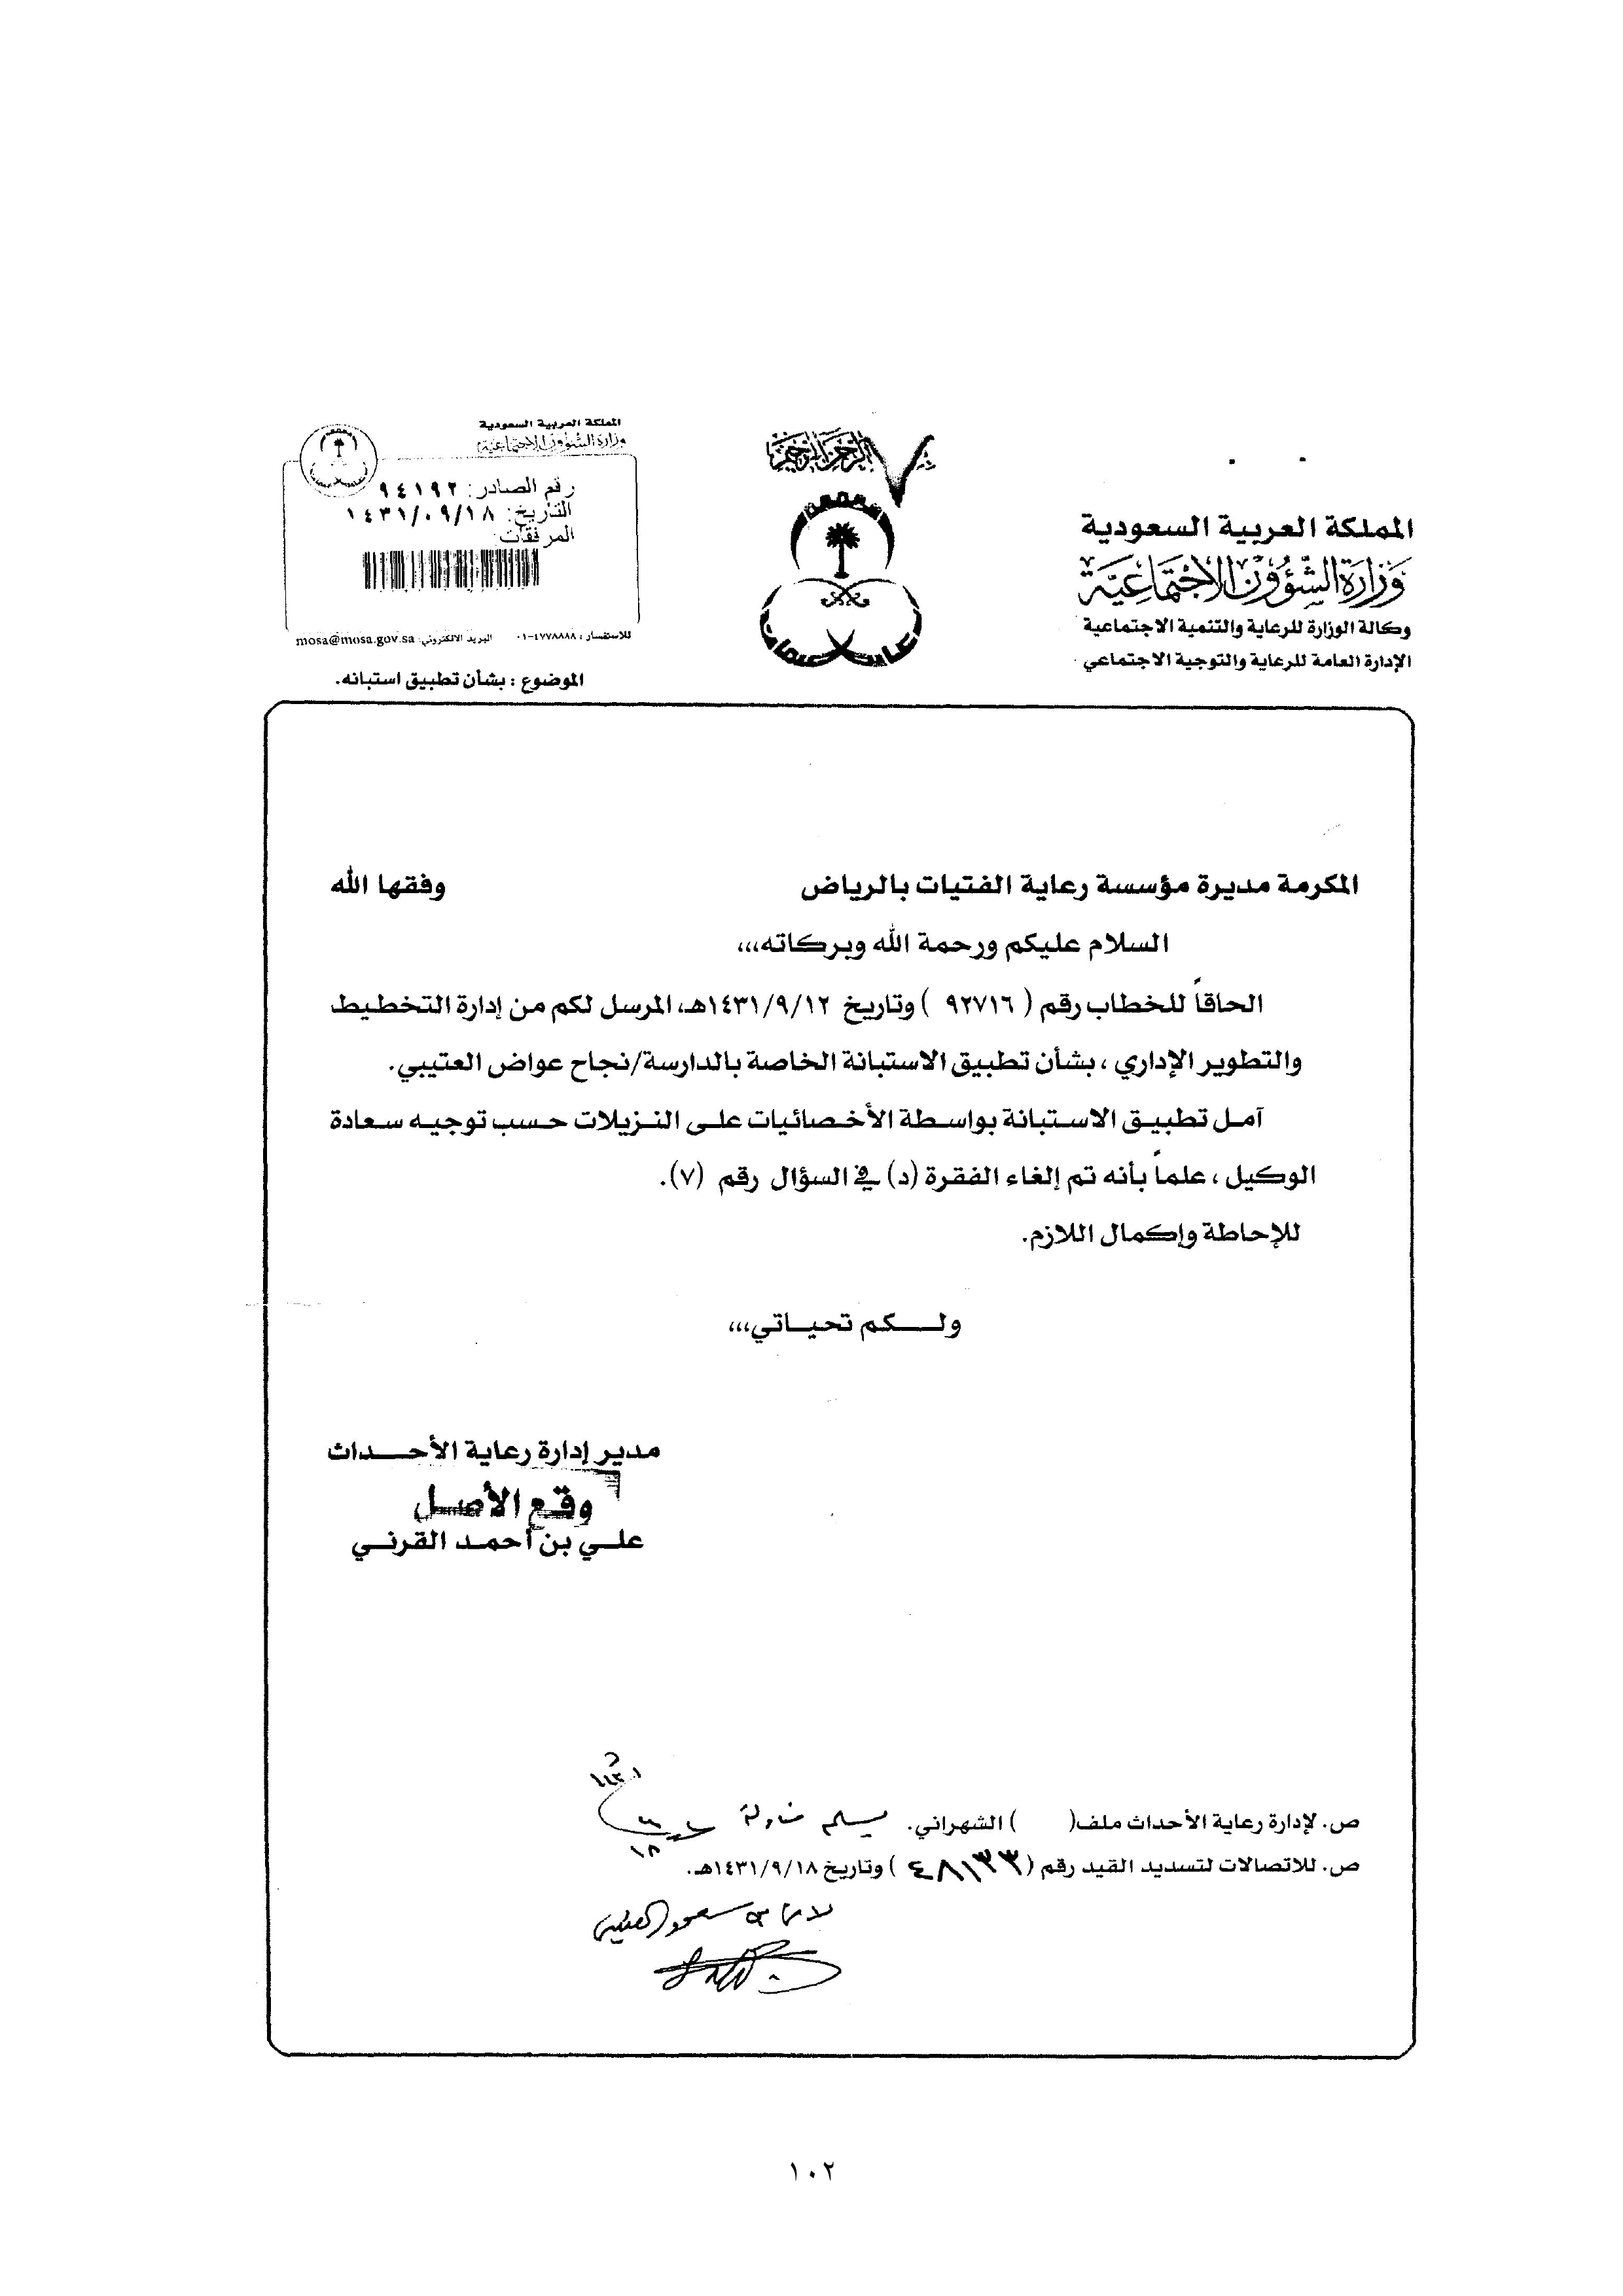 بسم الله الرحمن الرحيم
المملكة العربية السعودية
وزارة الشؤون الاجتماعية
وكالة الوزارة للرعاية والتنمية الاجتماعية
الإدارة العامة للرعاية والتوجية الاجتماعي
المملكة العربية السعودية
وزارة الشؤون الاجتماعية
رقم الصادر: ٩٤١٩٢
التاريخ: ١٤٣١/٠٩/١٨
المرفقات:
للاستفسار : ٤٧٧٨٨٨٨-٠١ البريد الالكتروني: mosa@mosa.gov.sa
الموضوع : بشأن تطبيق استبانه.
المكرمة مديرة مؤسسة رعاية الفتيات بالرياض وفقها الله
السلام عليكم ورحمة الله وبركاته،،،
الحاقاً للخطاب رقم ( ٩٢٧١٦ ) وتاريخ ١٤٣١/٩/١٢هـ، المرسل لكم من إدارة التخطيط
والتطوير الإداري ، بشأن تطبيق الاستبانة الخاصة بالدارسة/نجاح عواض العتيبي.
آمل تطبيق الاستبانة بواسطة الأخصائيات على النزيلات حسب توجيه سعادة
الوكيل ، علماً بأنه تم إلغاء الفقرة (د) في السؤال رقم (٧).
للإحاطة وإكمال اللازم.
ولكم تحياتي،،،
مدير إدارة رعاية الأحداث
وقع الأصل
علي بن أحمد القرني
ص. لإدارة رعاية الأحداث ملف( ) الشهراني. يسلم مناولة
ص. للاتصالات لتسديد القيد رقم ( ٤٨١٣٣ ) وتاريخ ١٤٣١/٩/١٨هـ.
١٠٢